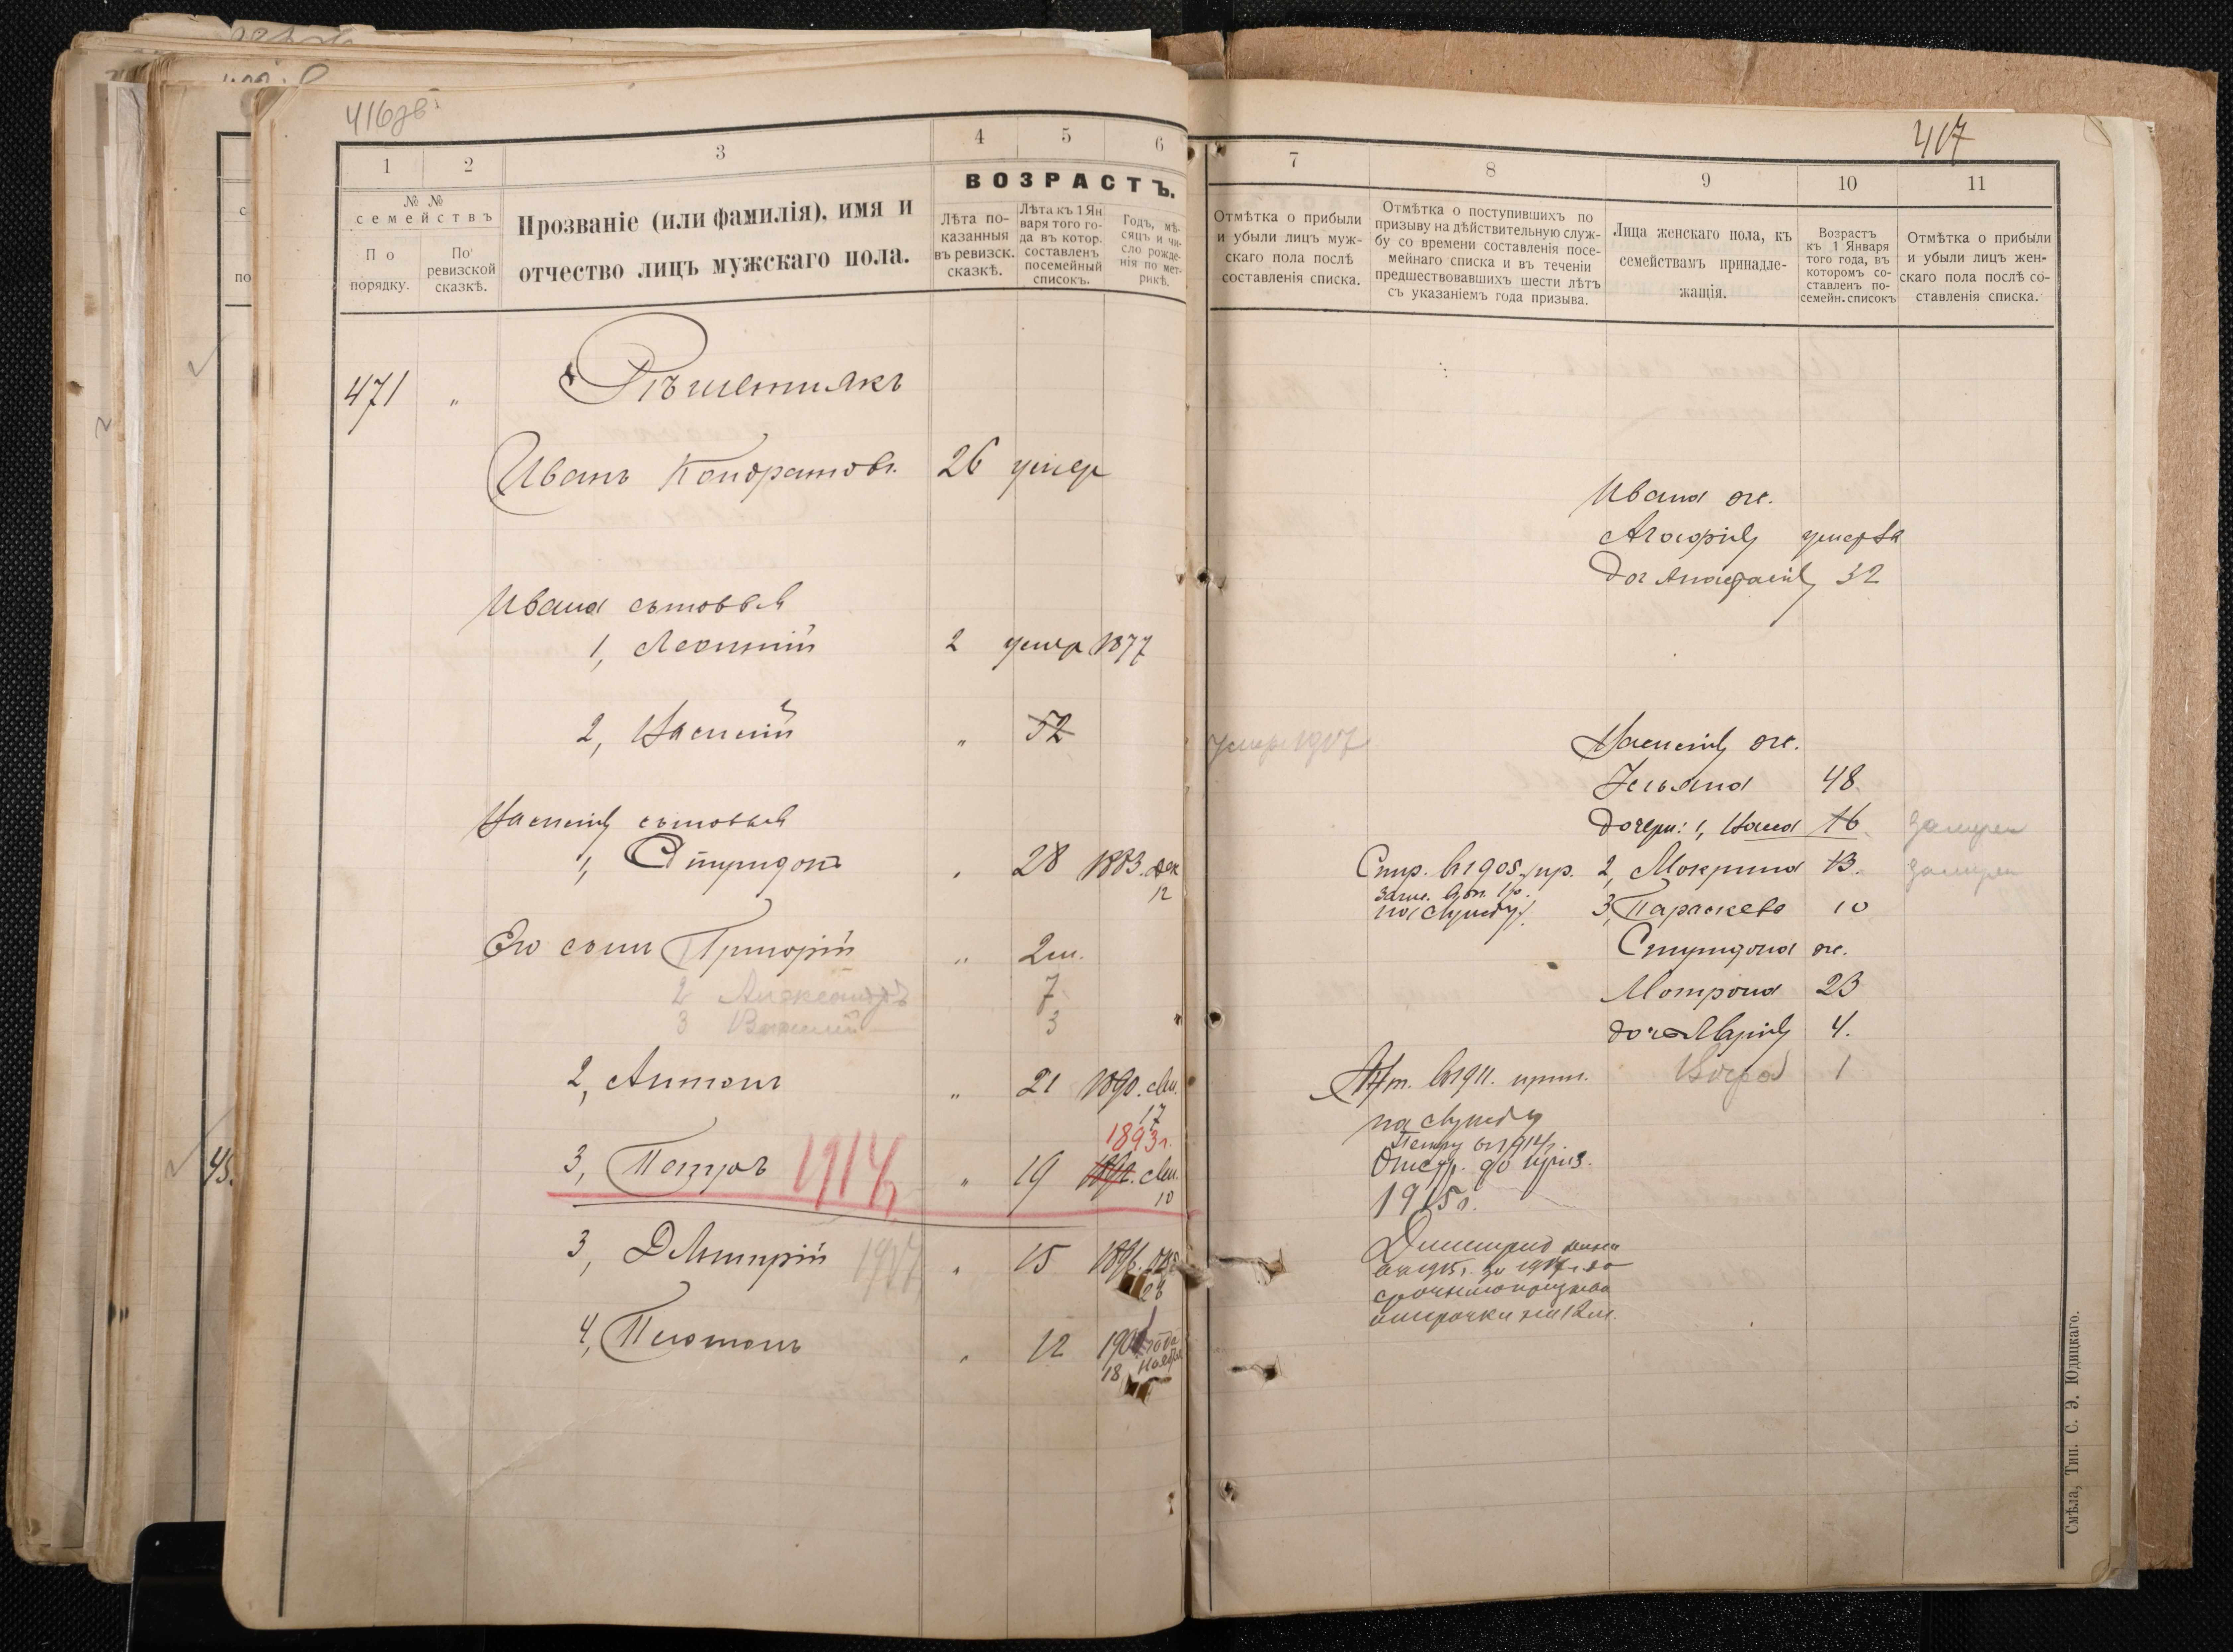 416об
1
2
3
4
5
6
№ №
семействъ
По
порядку.
По
ревизской
сказкѣ.
Прозваніе (или фамилія), имя и
отчество лицъ мужскаго пола.
ВОЗРАСТЪ.
Лѣта по-
казанныя
въ ревизск.
сказкѣ.
Лѣта къ 1 Ян
варя того го-
да въ котор.
составленъ
посемейный
списокъ.
Годъ, мѣ-
сяцъ и чи-
сло рожде-
нія по мет-
рикѣ.
471 "
Рѣшетнякъ
Иванъ Кондратовъ. 26 умер
Ивана сыновья
1, Леонтій 2 умер 1877
2, Василій " 52
Василія сыновья
1, Спиридонъ " 28 1883. Дек
12
Его сынъ Григорій " 2 м.
2 Александръ 7
3 Василій 3
2, Антонъ " 21 1890.
17
1893 г.
3, Петръ 1914 " 19 1892.
10
3, Дмитрій 1917 " 15 1896. Окт
26
4, Платонъ " 12 1901 года
18 Ноября
417
7
8
9
10
11
Отмѣтка о прибыли
и убыли лицъ муж-
скаго пола послѣ
составленія списка.
Отмѣтка о поступившихъ по
призыву на дѣйствительную служ-
бу со времени составленія посе-
мейнаго списка и въ теченіи
предшествовавшихъ шести лѣтъ
съ указаніемъ года призыва.
Лица женскаго пола, къ
семействамъ принадле-
жащія.
Возрастъ
къ 1 Января
того года, въ
которомъ со-
ставленъ по-
семейн. списокъ
Отмѣтка о прибыли
и убыли лицъ жен-
скаго пола послѣ со-
ставленія списка.
Ивана ж.
Агафія умерла
доч Анастасія 32
умер 1907
Василія ж.
Ульяна 48.
дочери: 1, 16 замужем
Спир. въ 1905 пр. 2, Мокрина 13. замужем
на службу. 3, Параскева 10
Спиридона ж.
Мотрона 23
доч Марія 4.
Ант. въ 1911. прин. 1
на службу
Петру въ 1914 г.
Отср. до приз.
1915 г.
Дмитрию
въ 1915 г.
срочнаго призыва
отсрочки на
Смѣла, Тип. С. Э. Юдицкаго.
45.